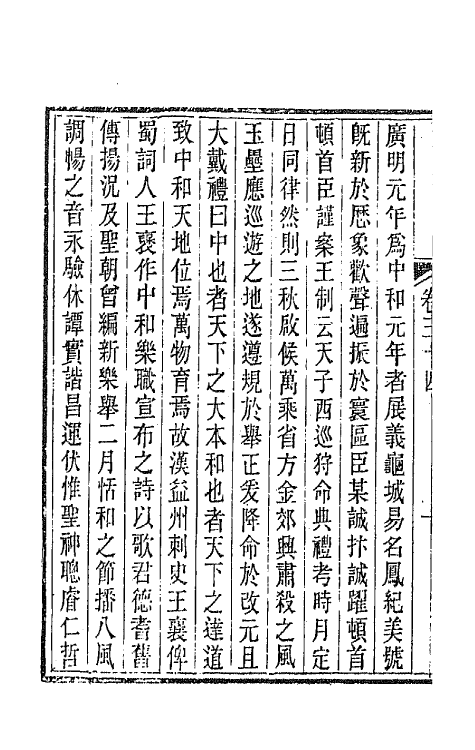 廣明元年爲中和元年者展義龜城易名鳳紀美號
旣新於厯象歡聲遍振於寰區臣某誠抃誠躍頓首
頓首臣謹案王制云天子西巡狩命典禮考時月定
日同律然則三秋啟候萬乘省方金郊興肅殺之風
玉壘應巡遊之地遂遵規於舉正爰降命於改元且
大戴禮曰中也者天下之大本和也者天下之達道
致中和天地位焉萬物育焉故漢益州刺史王襄俾
蜀詞人王襃作中和樂職宣布之詩以歌君德耆舊
傳揚況及聖朝曾編新樂舉二月恬和之節播八風
調暢之音永驗休譚實諧昌運伏惟聖神聰睿仁哲
卷三十四